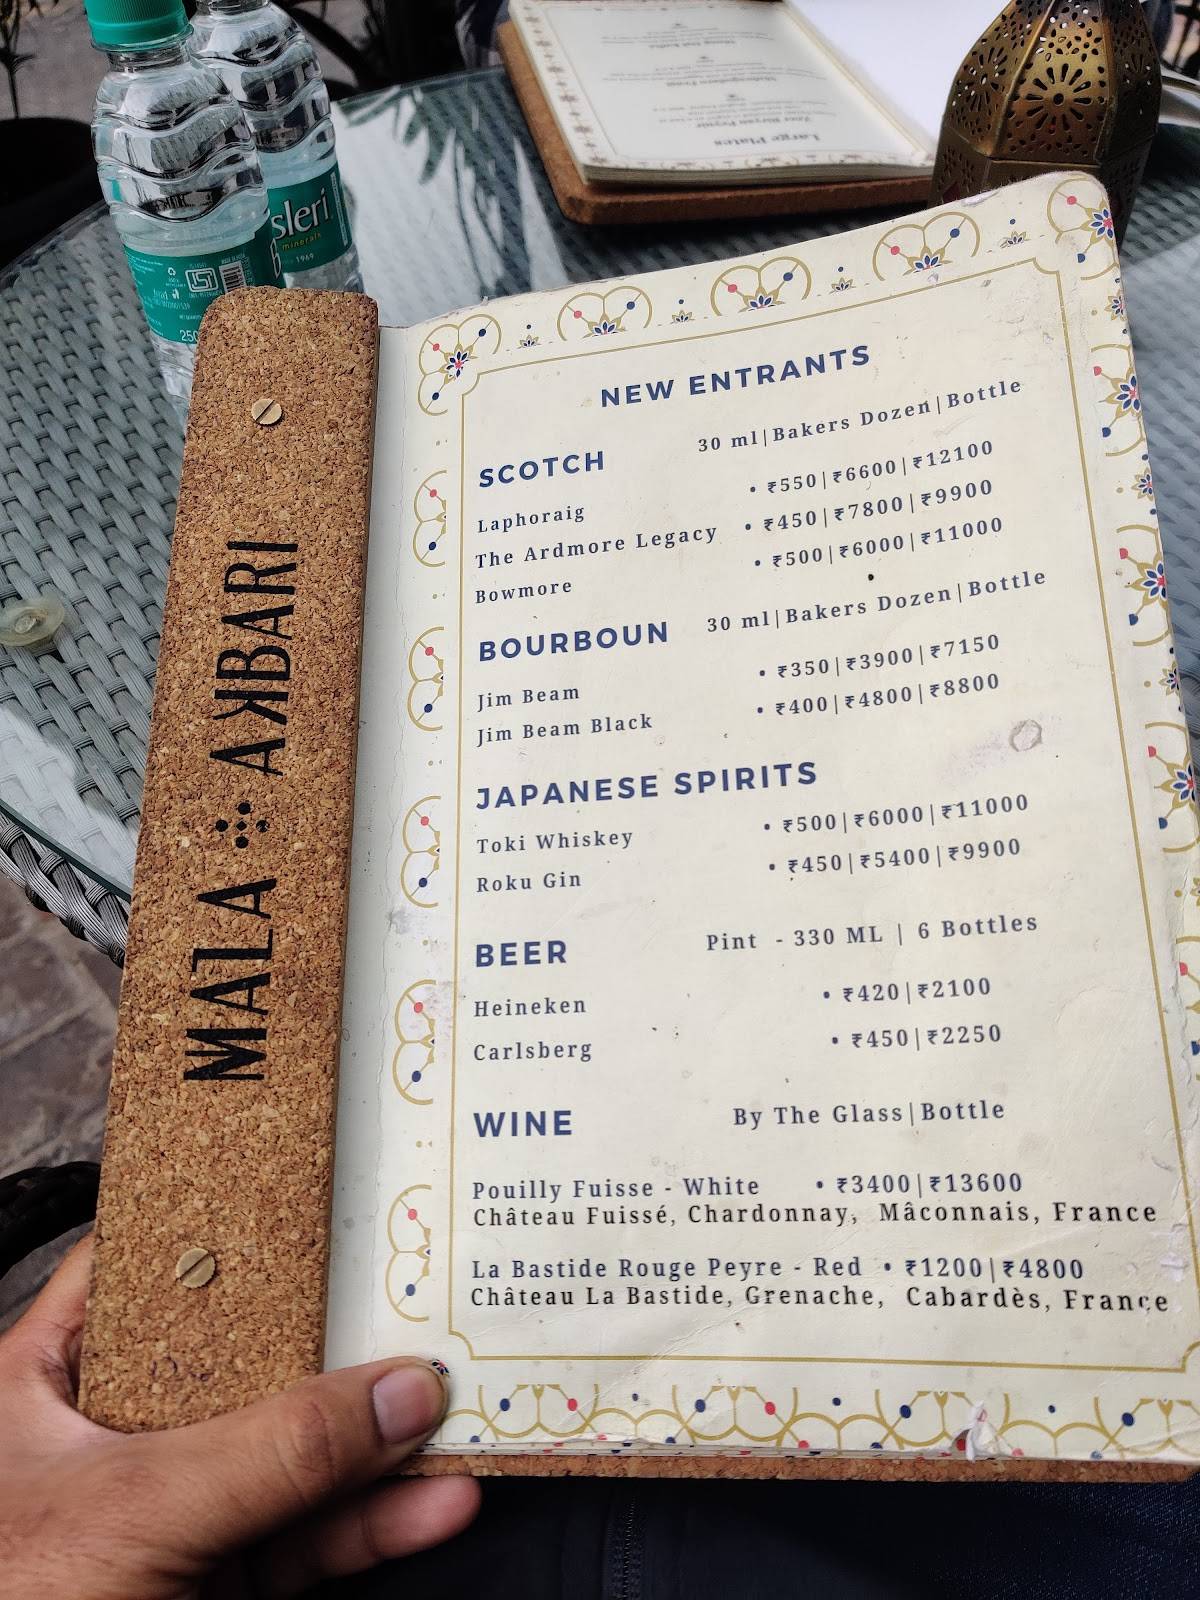 NEW ENTRANTS
SCOTCH 30 ml|Bakers Dozen|Bottle
Laphoraig • ₹550|₹6600|₹12100
The Ardmore Legacy • ₹450|₹7800|₹9900
Bowmore • ₹500|₹6000|₹11000
BOURBOUN 30 ml|Bakers Dozen|Bottle
Jim Beam • ₹350|₹3900|₹7150
Jim Beam Black • ₹400|₹4800|₹8800
JAPANESE SPIRITS
Toki Whiskey • ₹500|₹6000|₹11000
Roku Gin • ₹450|₹5400|₹9900
BEER Pint - 330 ML | 6 Bottles
Heineken • ₹420|₹2100
Carlsberg • ₹450|₹2250
WINE By The Glass|Bottle
Pouilly Fuisse - White • ₹3400|₹13600
Château Fuissé, Chardonnay, Mâconnais, France
La Bastide Rouge Peyre - Red • ₹1200|₹4800
Château La Bastide, Grenache, Cabardès, France
MALA AKBARI
sleri
minerals
1969
250
Large Plates